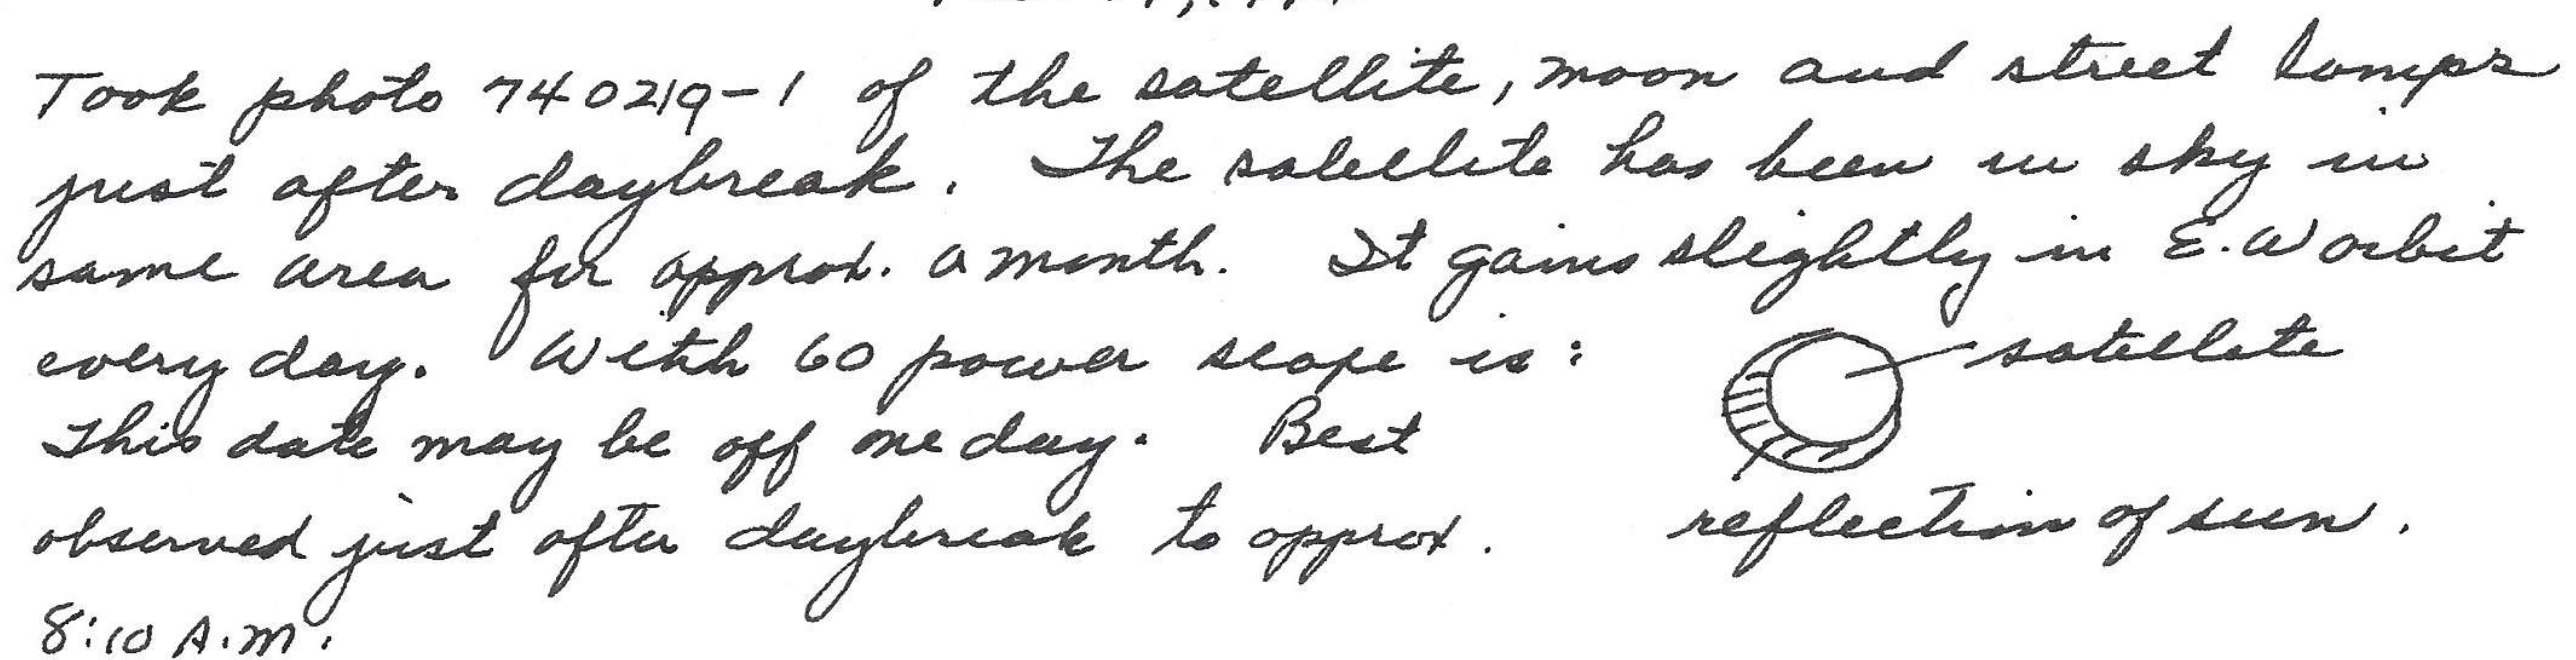 Took photo 740219-1 of the satellite, moon and street lamps
just after daybreak. The satellite has been in sky in
same area for approx. a month. It gains slightly in E.W orbit
every day. With 60 power scope is: satellite
This date may be off one day. Best
observed just after daybreak to approx. reflection of sun.
8:10 A.M.